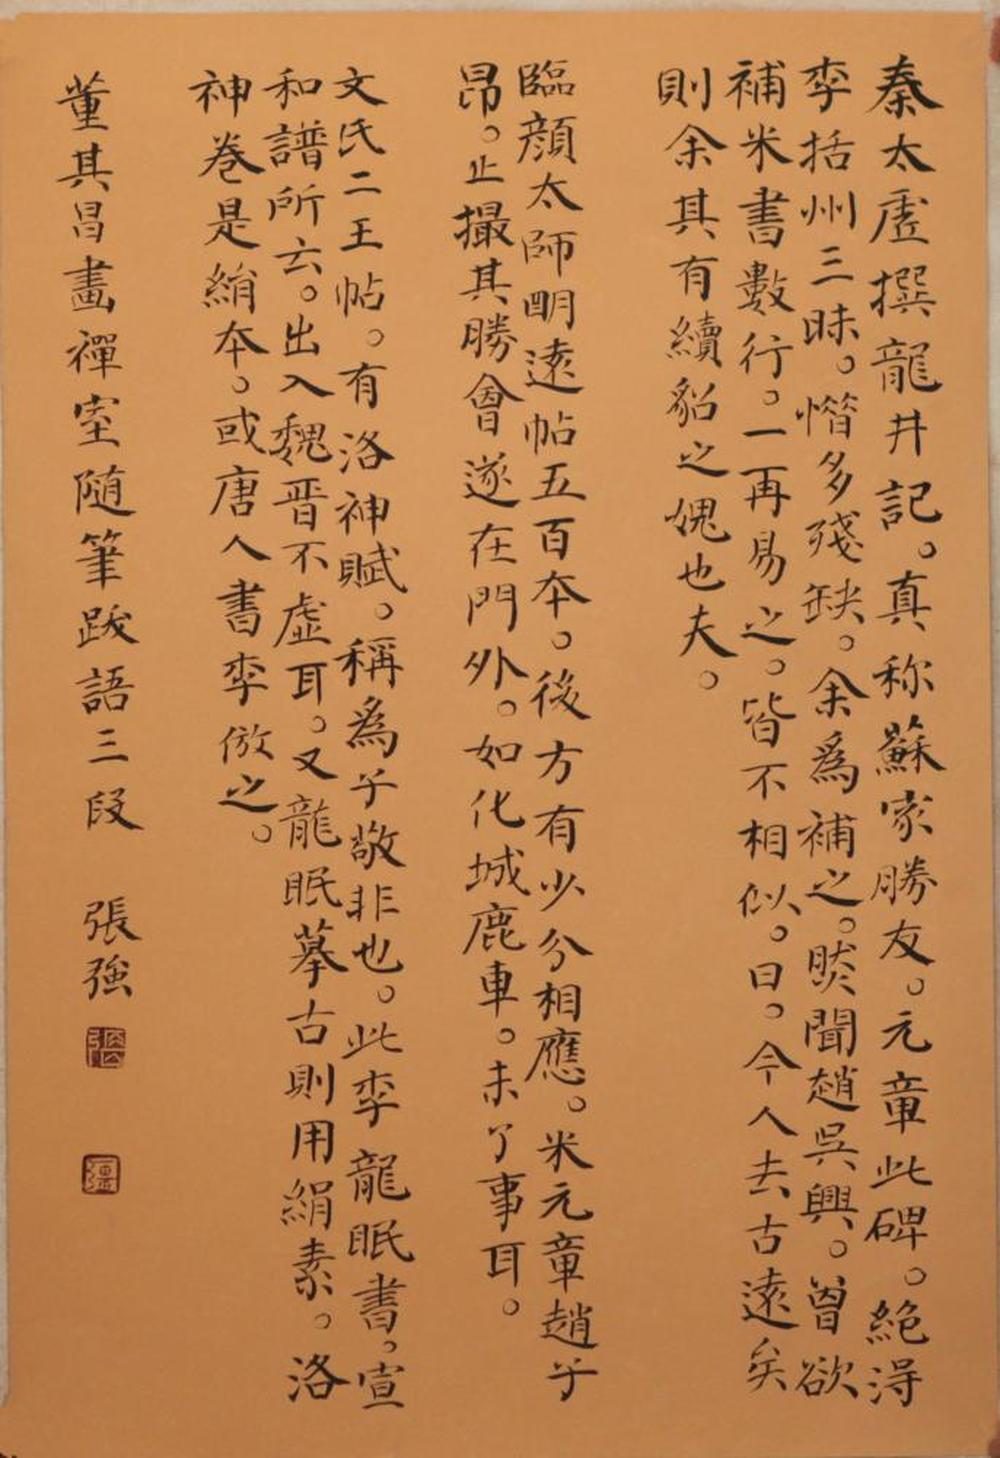 秦太虛撰龍井記。真称蘇家勝友。元章此碑。絶得
李括州三昧。惜多殘缺。余為補之。然聞趙吳興。曾欲
補米書數行。一再易之。皆不相似。曰。今人去古遠矣
則余其有續貂之媿也夫。
臨顔太師明遠帖五百本。後方有少分相應。米元章趙子
昂。止撮其勝會遂在門外。如化城鹿車。未了事耳。
文氏二王帖。有洛神賦。稱為子敬非也。此李龍眠書。宣
和譜所云。出入魏晋不虛耳。又龍眠摹古則用絹素。洛
神卷是絹本。或唐人書李倣之。
董其昌畫禪室随筆跋語三段 張強
張
強